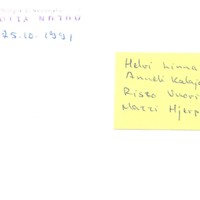 25.10.1991
Helvi Linna
Anneli Kalaj
Risto Vuori
Matti Hjerp